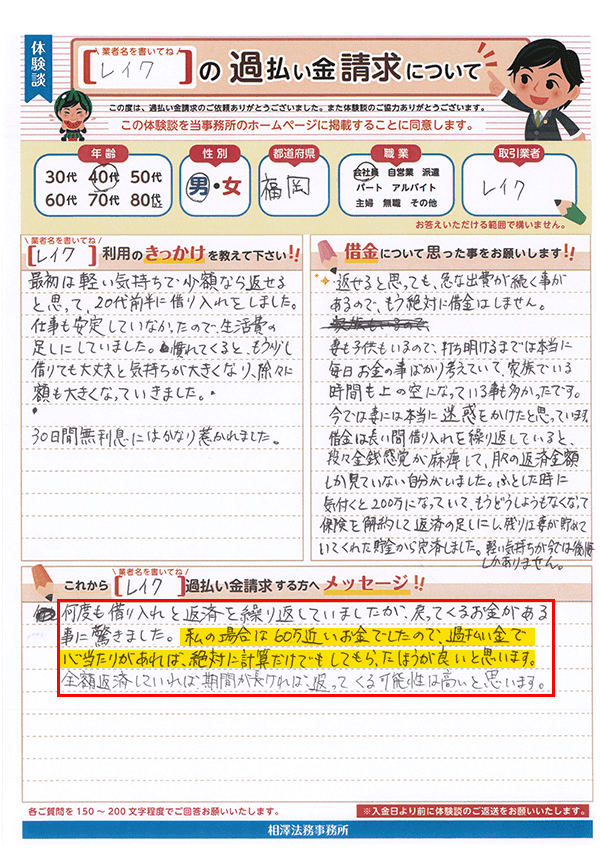 体験談
業者名を書いてね
[レイク]の過払い金請求について
この度は、過払い金請求のご依頼ありがとうございました。また体験談のご協力ありがとうございます。
この体験談を当事務所のホームページに掲載することに同意します。
年齢
30代 40代 50代
60代 70代 80代
性別
男・女
都道府県
福岡
職業
会社員 自営業 派遣
パート アルバイト
主婦 無職 その他
取引業者
レイク
お答えいただける範囲で構いません。
業者名を書いてね
[レイク]利用のきっかけを教えて下さい!!
最初は軽い気持ちで少額なら返せる
と思って、20代前半に借り入れをしました。
仕事も安定していなかたので、生活費の
足しにしていました。慣れてくると、もう少し
借りても大丈夫と気持ちが大きくなり、徐々に
額も大きくなっていきました。
30日間無利息にはかなり惹かれました。
借金について思った事をお願いします!!
返せると思っても、急な出費が続く事が
あるので、もう絶対に借金はしません。
家族もいるので
妻も子供もいるので、打ち明けるまでは本当に
毎日お金の事ばかり考えていて、家族でいる
時間も上の空になっている事も多かったです。
今では妻には本当に迷惑をかけたと思っています。
借金は長い間借り入れを繰り返していると、
段々金銭感覚が麻痺して、月々の返済金額
しか見ていない自分がいました。ふとした時に
気付くと200万になっていて、もうどうしようもなくなって
保険を解約して返済の足しにし、残りは妻が貯めて
いてくれた貯金から完済しました。軽い気持ちが今では後悔
しかありません。
業者名を書いてね
これから[レイク]過払い金請求する方へメッセージ!!
何度も借り入れと返済を繰り返していましたが、戻ってくるお金がある
事に驚きました。私の場合は60万近いお金でしたので、過払い金で
心当たりがあれば、絶対に計算だけでもしてもらったほうが良いと思います。
全額返済していれば、期間が長ければ、返ってくる可能性は高いと思います。
各ご質問を150～200文字程度でご回答お願いいたします。
※入金日より前に体験談のご返送をお願いいたします。
相澤法務事務所